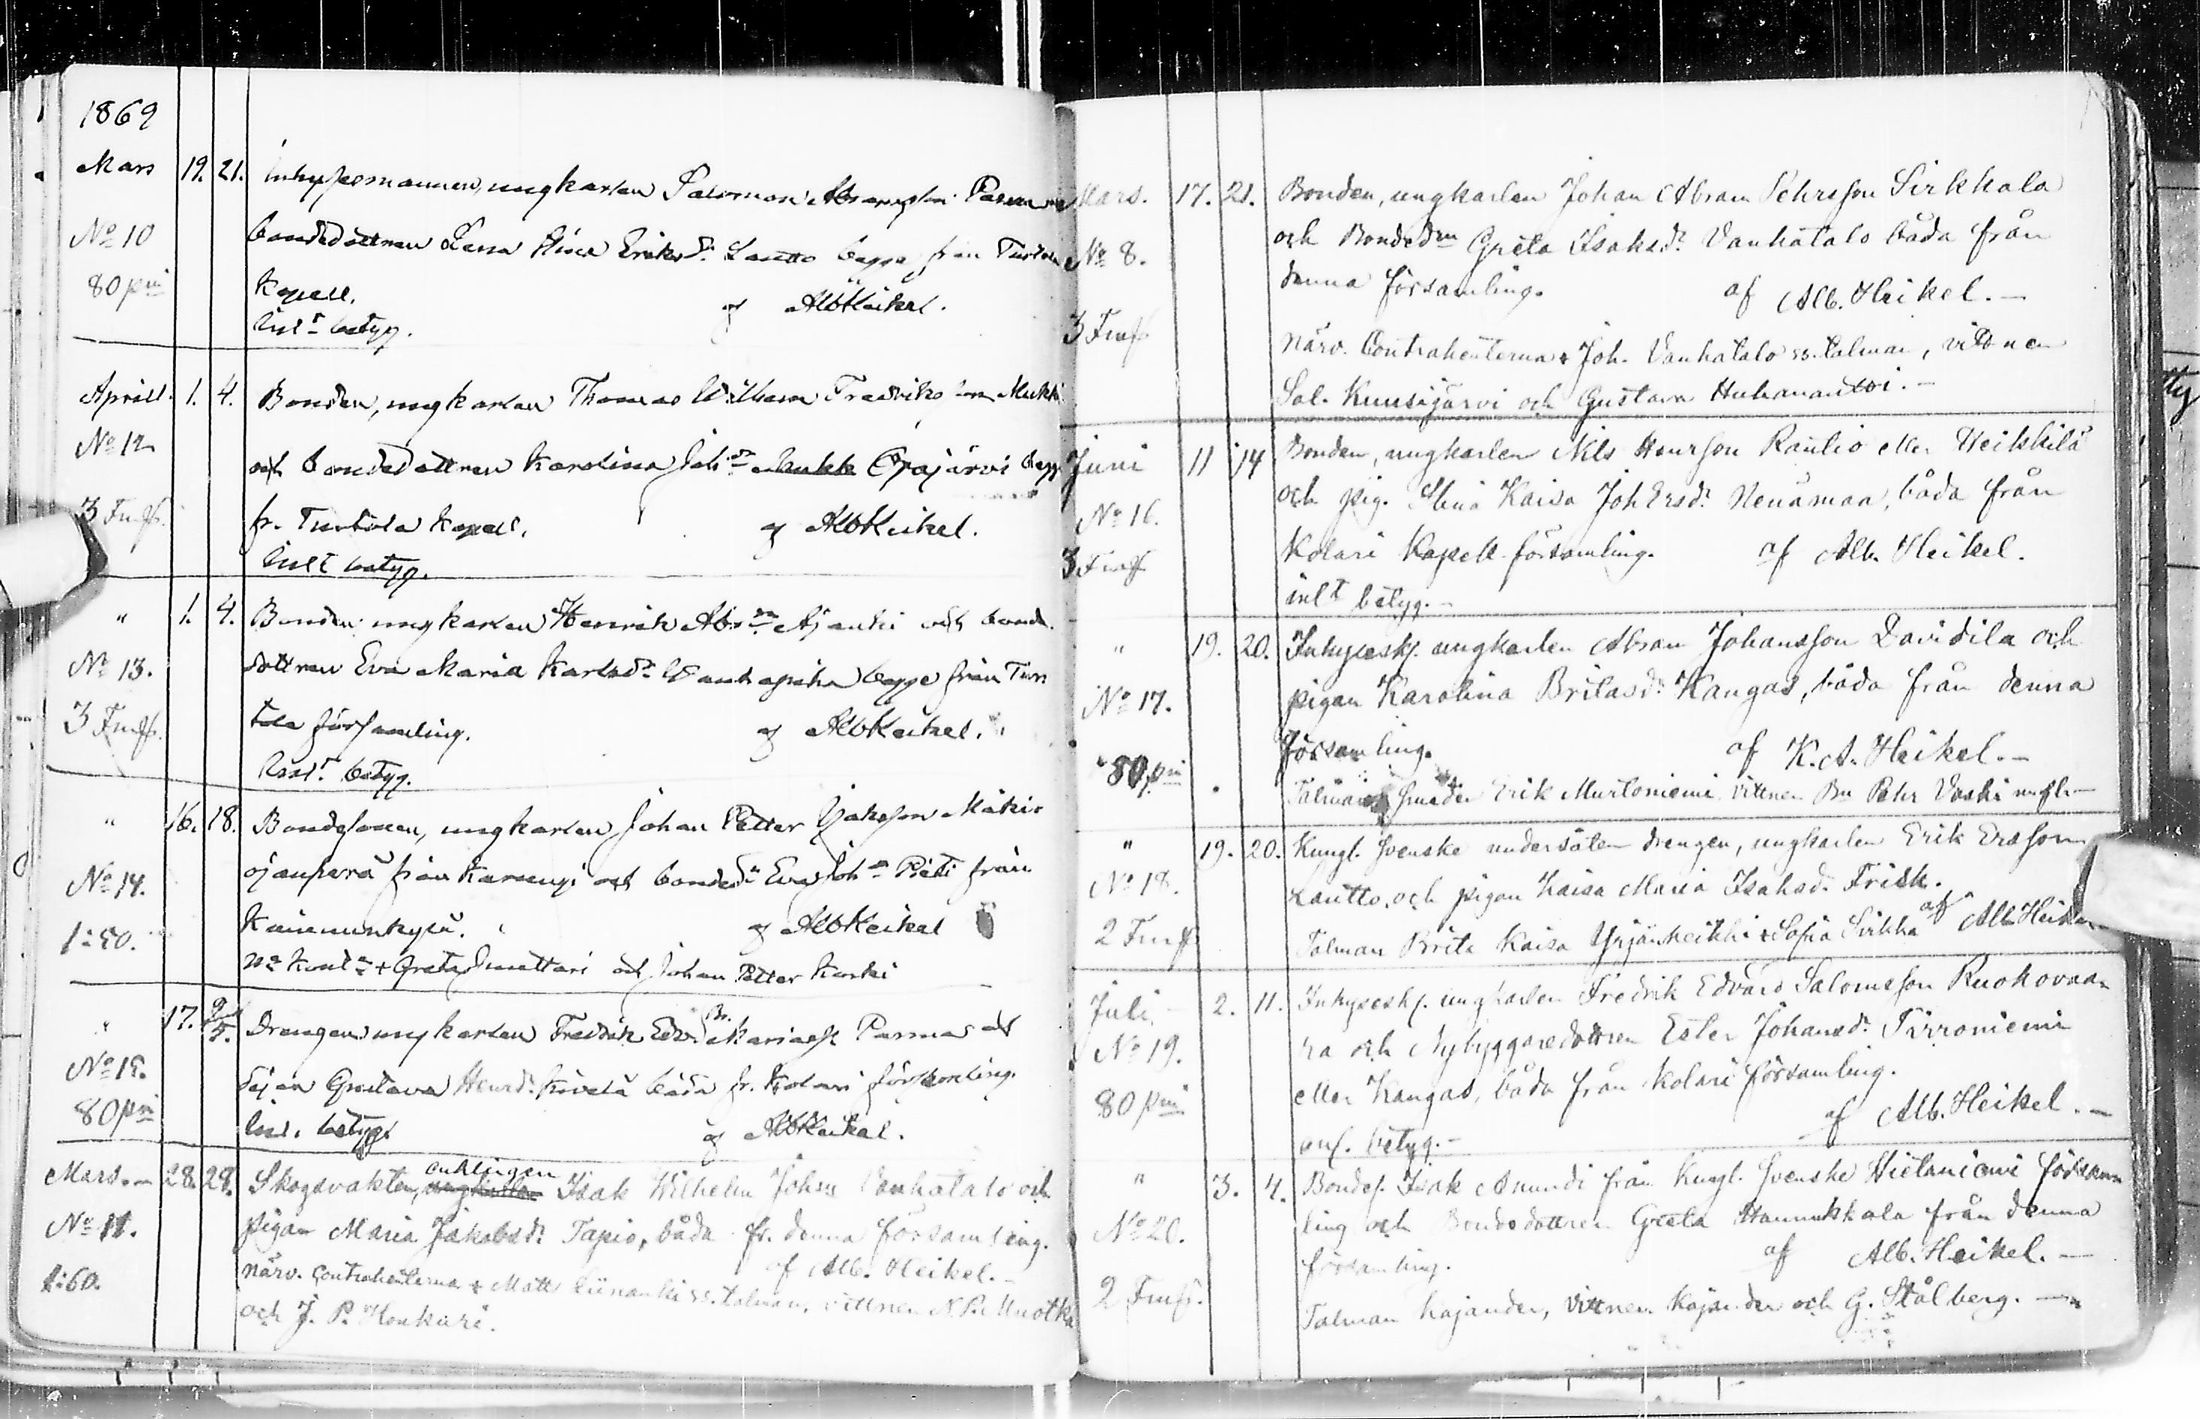 1869
Mars 19. 21. Inhysesmannen, ungkarlen Salomon Abramsson
No 10 bondedottren Lena Stina Eriksdr Lautto begge från Turtola
80 pni Kapell. af AlbHeikel.
Inlt betyg.
Aprill. 1. 4. Bonden, ungkarlen Thomas Wilhelm Fredriksson Mukk
No 12 och bondedottren Karolina Johdr Orajärvi begg
3 Fmk. fr. Turtola Kapell. af AlbHeikel.
Inlt betyg.
" 1. 4. Bonden ungkarlen Henrik Absn Ajanki och bonde
No 13. dottren Eva Maria Karlsdr Wanhapiha begge från Turt
3 Fmk. tola församling. af AlbHeikel.
betyg.
" 16. 18. Bondesonen, ungkarlen Johan Petter Isaksson Mäkit
No 14. ojanperä från Karungi och bondedn Eva Johdr Pieti från
1:50. Kainuunkylä. af AlbHeikel
Nä Kontr + Greta Lmattari och Johan Petter Koski
" 17. 9/5. Drengen, ungkarlen Fredrik Edv. Br. Mariaes Parma och
No 15. Pigan Gustava Henrdr Kivelä båda fr. Kolari församling.
80 pni Inl. betyg. af AlbHeikel.
Mars.— 28. 29. Skogsvakten, enklingen ungkarlen Isak Wilhelm Johss Vanhatalo och
No 11. pigan Maria Jakobsdr Tapio, båda fr. denna församling.
1:60. af Alb. Heikel.—
närv. Contrahenterna + Matts Liinanki ss. talman, vittnen N. P. Muotka
och J. P. Honkuri.
Mars. 17. 21. Bonden, ungkarlen Johan Abram Pehrsson Sirkkala
No 8. och Bondedn Greta Isaksdr Vanhatalo båda från
denna församling. af Alb. Heikel.—
3 Fmk närv. Contrahenterna + Joh. Vanhatalo ss. talman, vittnen
Sal. Kuusijärvi och Gustava Huhanantti.—
Juni 11 14 Bonden, ungkarlen Nils Henrsson Raulio eller Heikkilä
No 16. och pig. Stina Kaisa Joh Ersdr Nenämaa, båda från
3 Fmk Kolari Kapell församling. af Alb. Heikel.
inlt betyg.—
" 19. 20. Inhysesk. ungkarlen Abram Johansson Davidila och
No 17. pigan Karolina Britasdr Kangas, båda från denna
församling. af K. A. Heikel.—
80 pni Talman Smeden Erik Murtoniemi vittnen Bn Pehr Vaski
" 19. 20. Kungl. Svenske undersåten drengen, ungkarlen Erik Ersson
No 18. Lautto, och pigan Kaisa Maria Isaksdr Frisk.
2 Fmk Talman Brita Kaisa Yrjänheikki + Sofia Sirkka af Alb Heikel
Juli — 2. 11. Inhysesk. ungkarlen Fredrik Edvard Salomsson Ruokovaa-
No 19. ra och Nybyggaredottren Ester Johansdr Törroniemi
80 pni eller Kangas, båda från Kolari församling.
af Alb. Heikel.—
anf. betyg.—
" 3. 4. Bondes. Isak Anundi från Kungl. Svenske Hietaniemi försam
No 20. ling och Bondedottren Greta Hannukkala från denna
församling. af Alb. Heikel.—
2 Fmk. Talman Kajander, vittnen Kajander och G. Stålberg.—